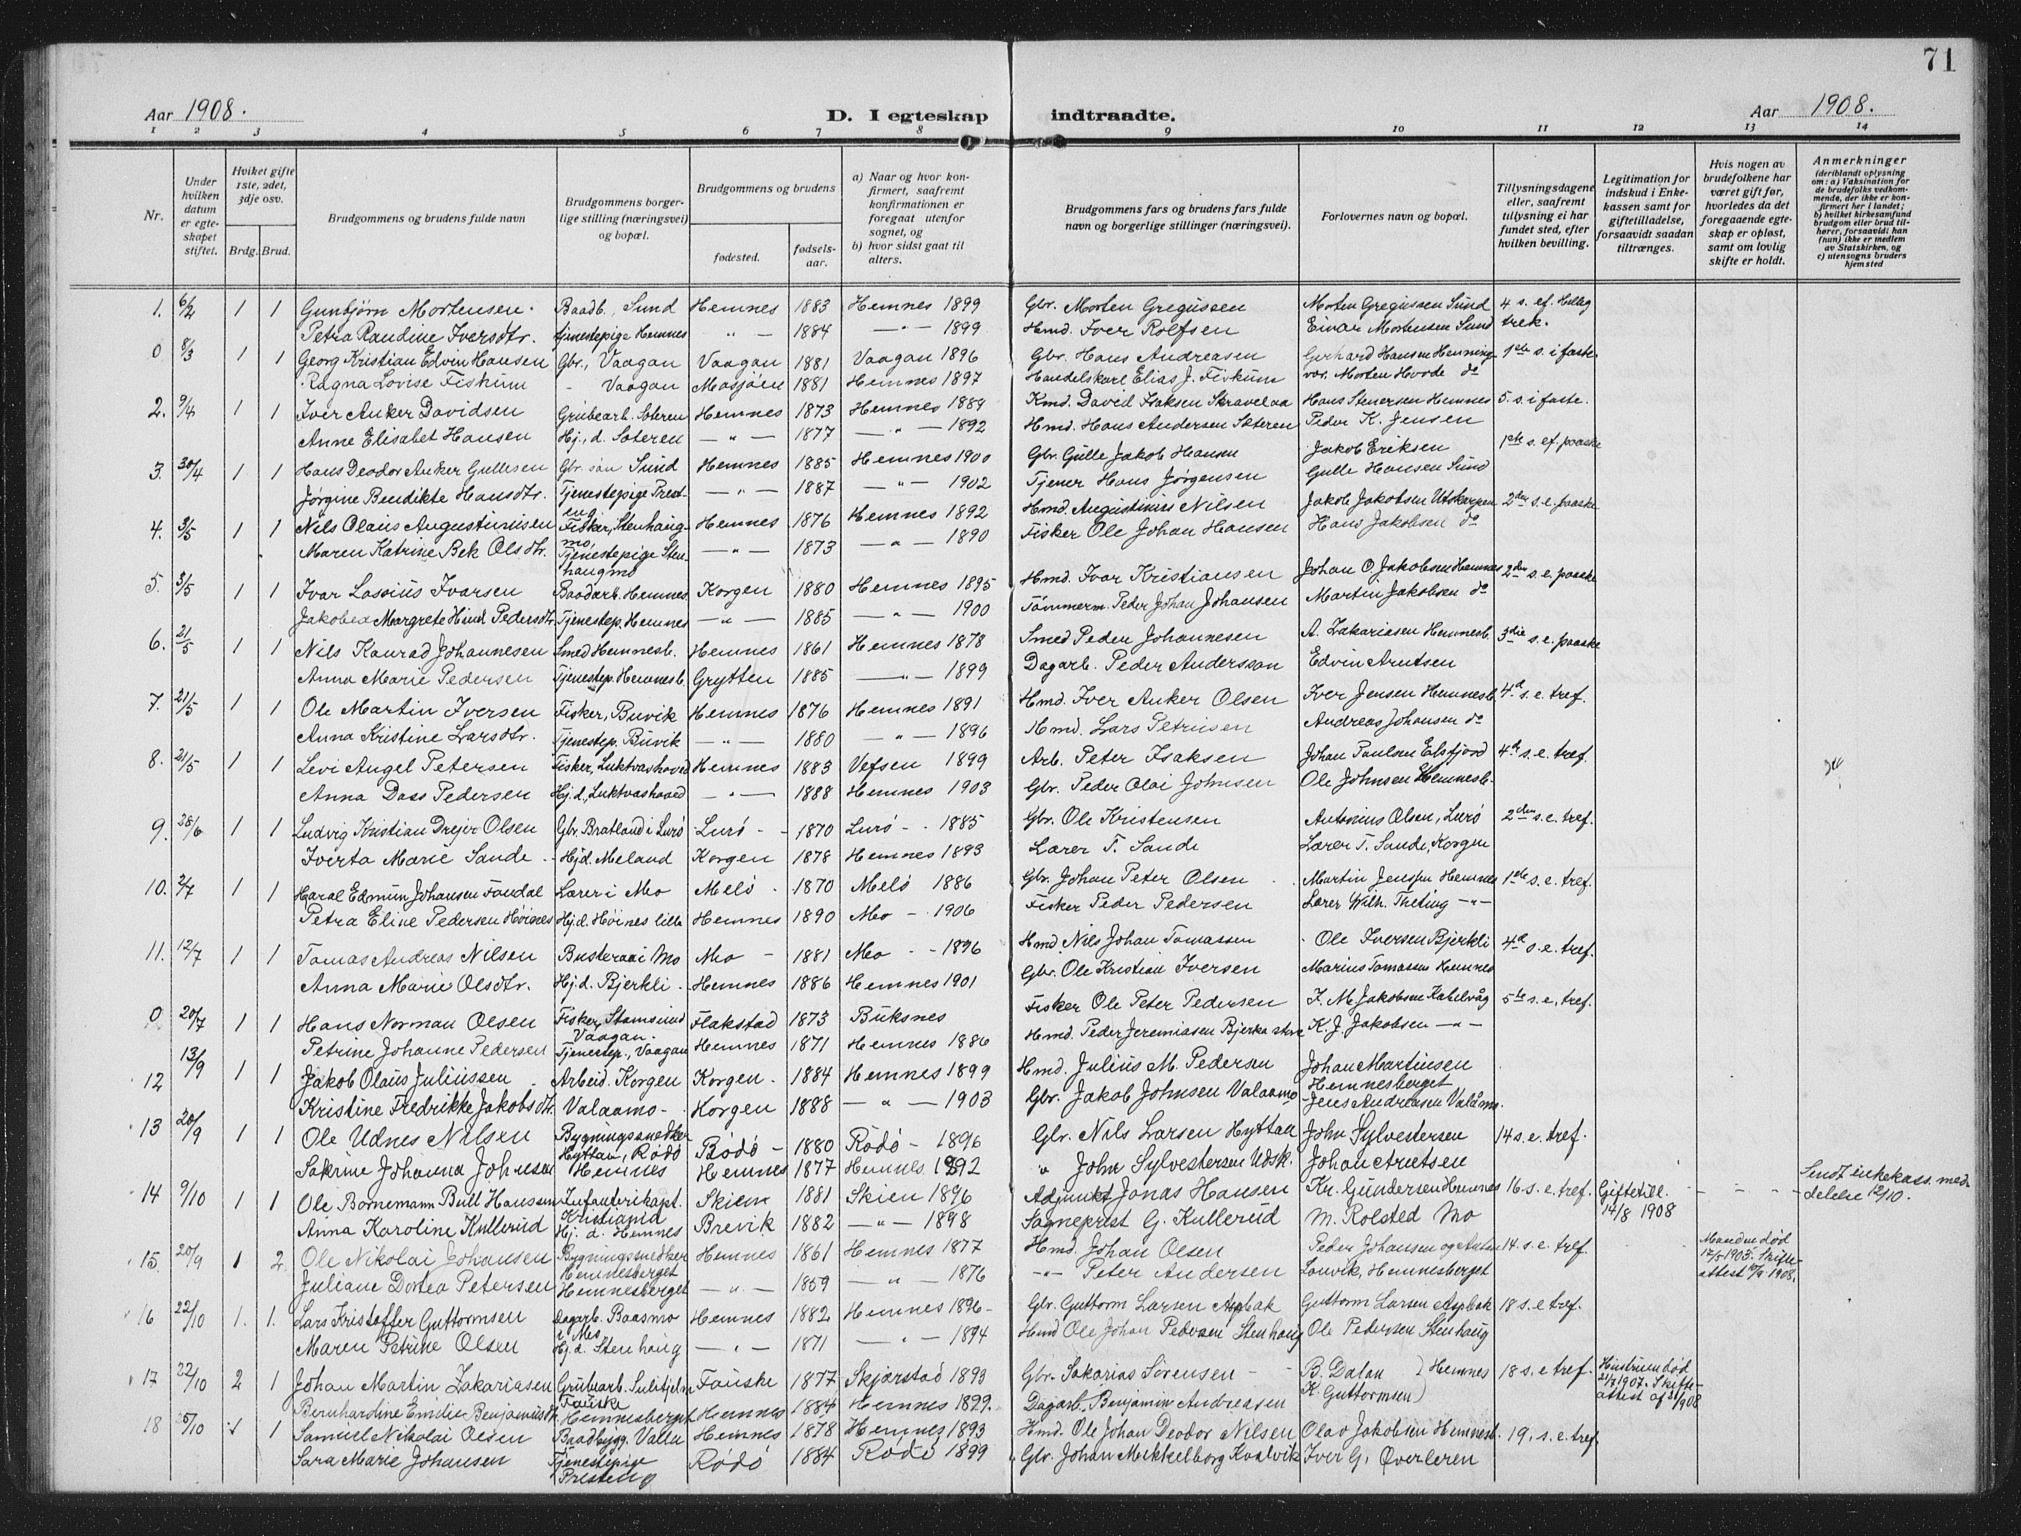 71
Aar 1908. D. I egteskap indtraadte. Aar 1908.
1 2 3 4 5 6 7 8 9 10 11 12 13 14
Nr.
Under hvilken datum er egteskapet stiftet.
Hviket gifte 1ste, 2det, 3dje osv.
Brdg. Brud.
Brudgommens og brudens fulde navn
Brudgommens borgerlige stilling (næringsvei) og bopæl.
Brudgommens og brudens
fødested.
fødselsaar.
a) Naar og hvor konfirmert, saafremt konfirmationen er foregaat utenfor sognet, og
b) hvor sidst gaat til alters.
Brudgommens fars og brudens fars fulde navn og borgerlige stillinger (næringsvei).
Forlovernes navn og bopæl.
Tillysningsdagene eller, saafremt tillysning ei har fundet sted, efter hvilken bevilling.
Legitimation for indskud i Enkekassen samt for giftetilladelse, forsaavidt saadan tiltrænges.
Hvis nogen av brudefolkene har været gift før, hvorledes da det foregaaende egteskap er opløst, samt om lovlig skifte er holdt.
Anmerkninger
(deriblandt oplysning om: a) Vaksination for de brudefolks vedkommende, der ikke er konfirmert her i landet; b) hvilket kirkesamfund brudgom eller brud tilhører, forsaavidt han (hun) ikke er medlem av Statskirken, og c) utensogns bruders hjemsted
1. 6/2 1 1 Gunbjørn Mortensen. Baadb., Sund Hemnes 1883 Hemnes 1899 Gbr. Morten Gregussen Morten Gregussen Sund 4 s. ef. Hellig
Petra Randine Iversdtr. tjenestepige Hemnes -"- 1884 -"- 1899 Hmd. Iver Rolfsen Einar Mortensen Sund trek.
0 8/3 1 1 Georg Kristian Edvin Hansen Gbr., Vaagan Vaagan 1881 Vaagan 1896 Gbr. Hans Andreasen Gerhard Hansen Henning- 1ste s. i faste
Ragna Lovise Fiskum - Vaagan Mosjøen 1881 Hemnes 1897 Handelskarl Elias J. Fiskum vær. Morten Hovde do
2. 9/4 1 1 Iver Anker Davidsen Grubearb. Soteren Hemnes 1873 Hemnes 1889 Kmd. David Isaksen Skravelaa Hans Stenersen Hemnes 5. s. i faste.
Anne Elisabet Hansen Hj. d. Soteren -"- 1877 -"- 1892 Hmd. Hans Andersen Skteren Peder K. Jensen
3. 30/4 1 1 Hans Deodor Anker Gullesen Gbr. søn Sund Hemnes 1885 Hemnes 1900 Gbr. Gulle Jakob Hansen Jakob Eriksen 1ste s. ef. paaske
Jørgine Bendikte Hansdtr. Tjenestepige Prest- eng. -"- 1887 -"- 1902 Tjener Hans Jørgensen Gulle Hansen Sund
4. 3/5 1 1 Nils Olaus Augustinusen Fisker, Stenhaug- mo, Hemnes 1876 Hemnes 1892 Hmd. Augustinus Nilsen Jakob Jakobsen Utskarpen 2den s. e. paaske
Maren Katrine Bek Olsdtr. Tjenestepige Sten- haugmo -"- 1873 -"- 1890 Fisker Ole Johan Hansen Hans Jakobsen do
5. 3/5 1 1 Ivar Lassius Ivarsen Baadarb. Hemnes Korgen 1880 Hemnes 1895 Hmd. Ivar Kristiansen Johan O. Jakobsen Hemnes 2den s. e. paaske
Jakobea Margrete Hind Pedersdtr. Tjenestep. Hemnes -"- 1885 -"- 1900 Tømmerm. Peder Johan Johansen Martin Jakobsen do
6. 21/5 1 1 Nils Konrad Johannesen Smed Hemnesb. Hemnes 1861 Hemnes 1878 Smed Peder Johannesen A. Zakariasen Hemnesb. 3die s. e. paaske
Anna Marie Pedersen Tjenestep. Hemnesb. Grytten 1885 -"- 1899 Dagarb. Peder Andersson Edvin Arntsen
7. 21/5 1 1 Ole Martin Iversen Fisker, Buvik Hemnes 1876 Hemnes 1891 Hmd. Iver Anker Olsen Iver Jensen Hemnesb. 4de s. e. tref.
Anna Kristine Larsdtr. Tjenestep. Buvik -"- 1880 -"- 1896 Hmd. Lars Petrusen Andreas Johansen do
8. 21/5 1 1 Levi Angel Petersen Fisker, Luktvashoved Hemnes 1883 Vefsen 1899 Arb. Peter Isaksen Johan Paulsen Elsfjord 4de s. e. tref.
Anna Dass Pedersen Hj. d., Luktvashoved -"- 1888 Hemnes 1903 Gbr. Peder Olai Johnsen Ole Johnsen Hemnesb.
9. 28/6 1 1 Ludvig Kristian Drejer Olsen Gbr. Bratland i Lurø Lurø - - 1870 Lurø - . 1885 Gbr. Ole Kristensen Antonius Olsen, Lurø 2den s. e. tref.
Iverta Marie Sande Hj. d. Meland Korgen 1878 Hemnes 1893 Lærer T. Sande Lærer T. Sande, Korgen
10. 2/7 1 1 Haral Edmun Johansen Fondal Lærer i Mo Melø 1870 Melø 1886 Gbr. Johan Peter Olsen Martin Jensen Hemnes 1ste s. e. tref.
Petra Eline Pedersen Høines Hj. d. Høines lille Hemnes 1890 Mo - 1906 Fisker Peder Pedersen Lærer Wilh. Theting -"-
11. 12/7 1 1 Tomas Andreas Nilsen Busteraa i Mo Mo - 1881 Mo - - 1896 Hmd Nils Johan Tomassen Ole Iversen Bjerkli 4de s. e. tref.
Anna Marie Olsdtr. Hj. d. Bjerkli Hemnes 1886 Hemnes 1901 Gbr. Ole Kristian Iversen Marius Tomassen Hemnes
0 20/7 1 1 Hans Norman Olsen Fisker, Stamsund Vaagan. Flakstad 1873 Buksnes Fisker Ole Peter Pedersen J. M. Jakobsen Kabelvåg 5te s. e. tref.
Petrine Johanne Pedersen Tjenestep., Vaagan Hemnes 1871 Hemnes 1886 Hmd. Peder Jeremiasen Bjerka K. J. Jakobsen -"-
12 13/9 1 1 Jakob Olaus Juliussen Arbeid. Korgen Korgen. 1884 Hemnes 1899 Hmd. Julius M. Pedersen Johan Martinsen Hemnesberget
Kristine Fredrikke Jakobsdtr. Valaamo - Korgen 1888 -"- 1903 Gbr. Jakob Johnsen Valaamo Jens Andreasen Valåmo.
13 20/9 1 1 Ole Udnes Nilsen Bygningssnedker Hyttan, Rødø Rødø - 1880 Rødø - 1896 Gbr. Nils Larsen Hyttan John Sylvestersen 14 s. e. tref.
Sakrine Johanna Johnsen Hemnes Hemnes 1877 Hemnes 1892 " John Sylvestersen Udsk. Johan Arntsen
14 9/10 1 1 Ole Bornemann Bull Hansen Infanterikapt. Kristiania Skien 1881 Skien 1896 Adjunkt Jonas Hansen Kr. Gundersen Hemnes 16 s. e. tref. Giftetill. 14/8 1908 - - - Sendt enkekass. med- delelse 12/10.
Anna Karoline Kullerud Hj. d. Hemnes Brevik 1882 -"- 1898 Sogneprest G. Kullerud M. Rolsted Mo
15. 20/9 1 2 Ole Nikolai Johansen Bygningssnedker Hemnesberget Hemnes 1861 Hemnes 1877 Hmd. Johan Olsen Peder Johansen og Anton 14. s. e. tref. Manden død 12/5 1905. Skifte- attest 10/9 1908.
Juliane Dortea Petersen Hemnesberget -"- 1859 -"- 1876 -"- Peter Andersen Louvik, Hemnesberget
16 22/10 1. 1. Lars Kristoffer Guttormsen Dagarb. Baasmo i Mo Hemnes 1882 Hemnes 1896 - Gbr. Guttorm Larsen Aspbak Guttorm Larsen Aspbak 18 s. e. tref.
Maren Petrine Olsen Hj. d. Stenhaug -"- 1871 -"- 1894 Hmd Ole Johan Pedersen Stenhaug Ole Pedersen Stenhaug
17 22/10 2 1 Johan Martin Zakariasen Grubearb. Sulitjelma Fauske Fauske 1877 Skjærstad 1893 Gbr. Sakarias Sørensen - B. Dalan ) Hemnes 18 s. e tref. Hustruen død 21/7 1907. Skifte- attest af 31/ 1908
Bernhardine Emelie Benjaminsdtr. Hemnesberget Hemnes 1884 Hemnes 1899. Dagarb. Benjamin Andreasen K. Guttormsen )
18 25/10 1 1 Samuel Nikolai Olsen Baadbygg. Valla Hemnes 1878 Hemnes 1893 Hmd. Ole Johan Deodor Nilsen Olav Jakobsen Hemnesb. 19. s. e. tref.
Sara Marie Johansen Tjenestepige Presteng Rødø 1884 Rødø 1899 Gbr. Johan Mikkelborg Kvalvik Iver G. Øverleren